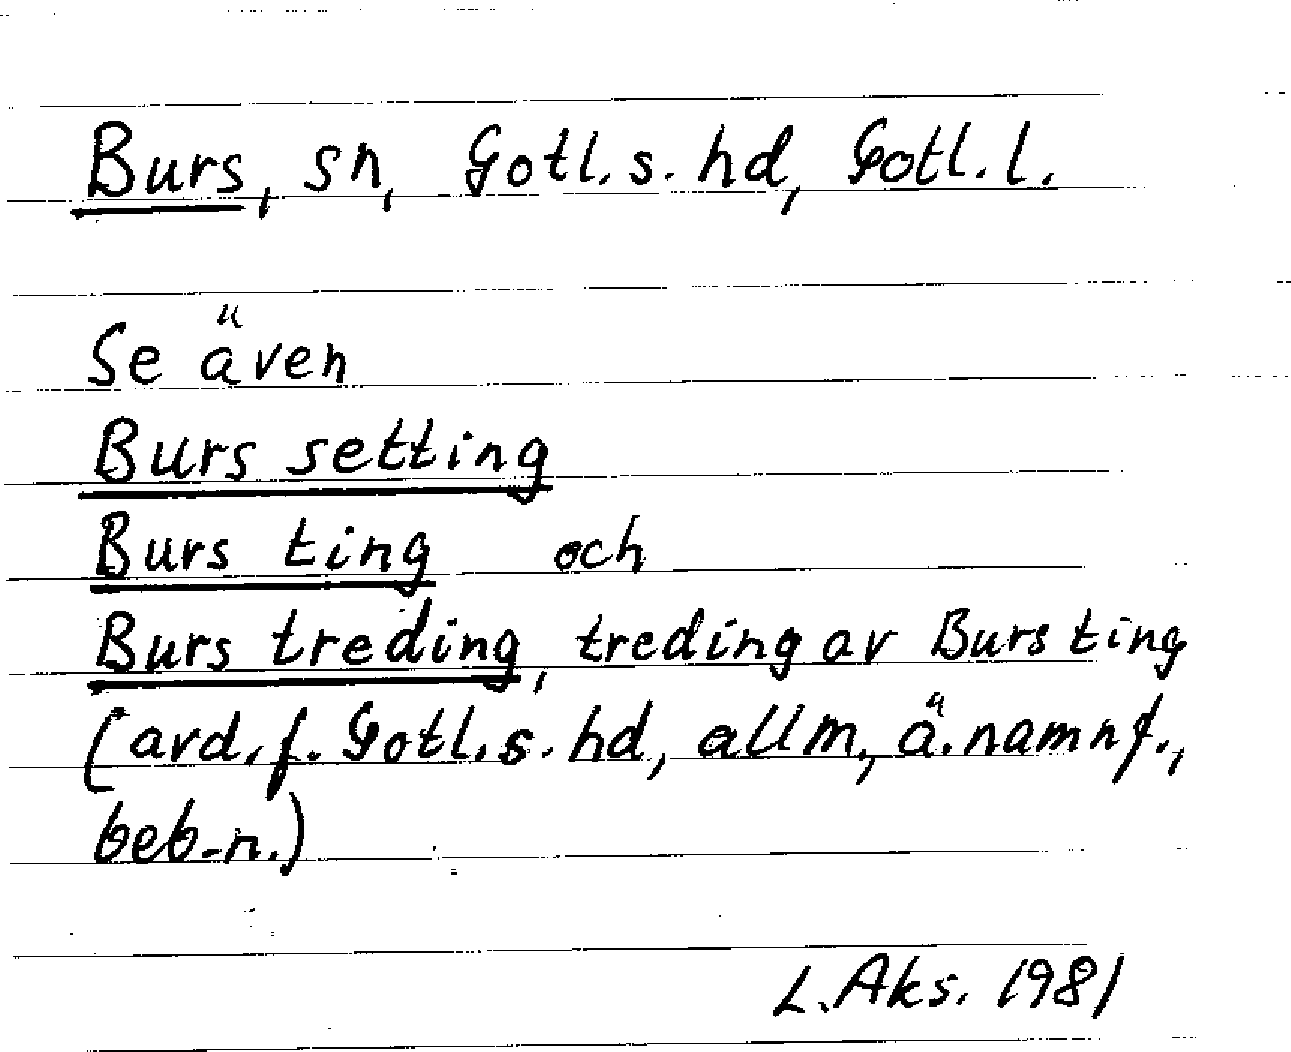 Burs, sn, Gotl. s. hd, Gotl. l.
Se även
Burs setting
Burs ting och
Burs treding, treding av Burs ting
(avd. f. Gotl. s. hd, allm, ä. namnf.,
beb-n.)
L. Aks. 1981